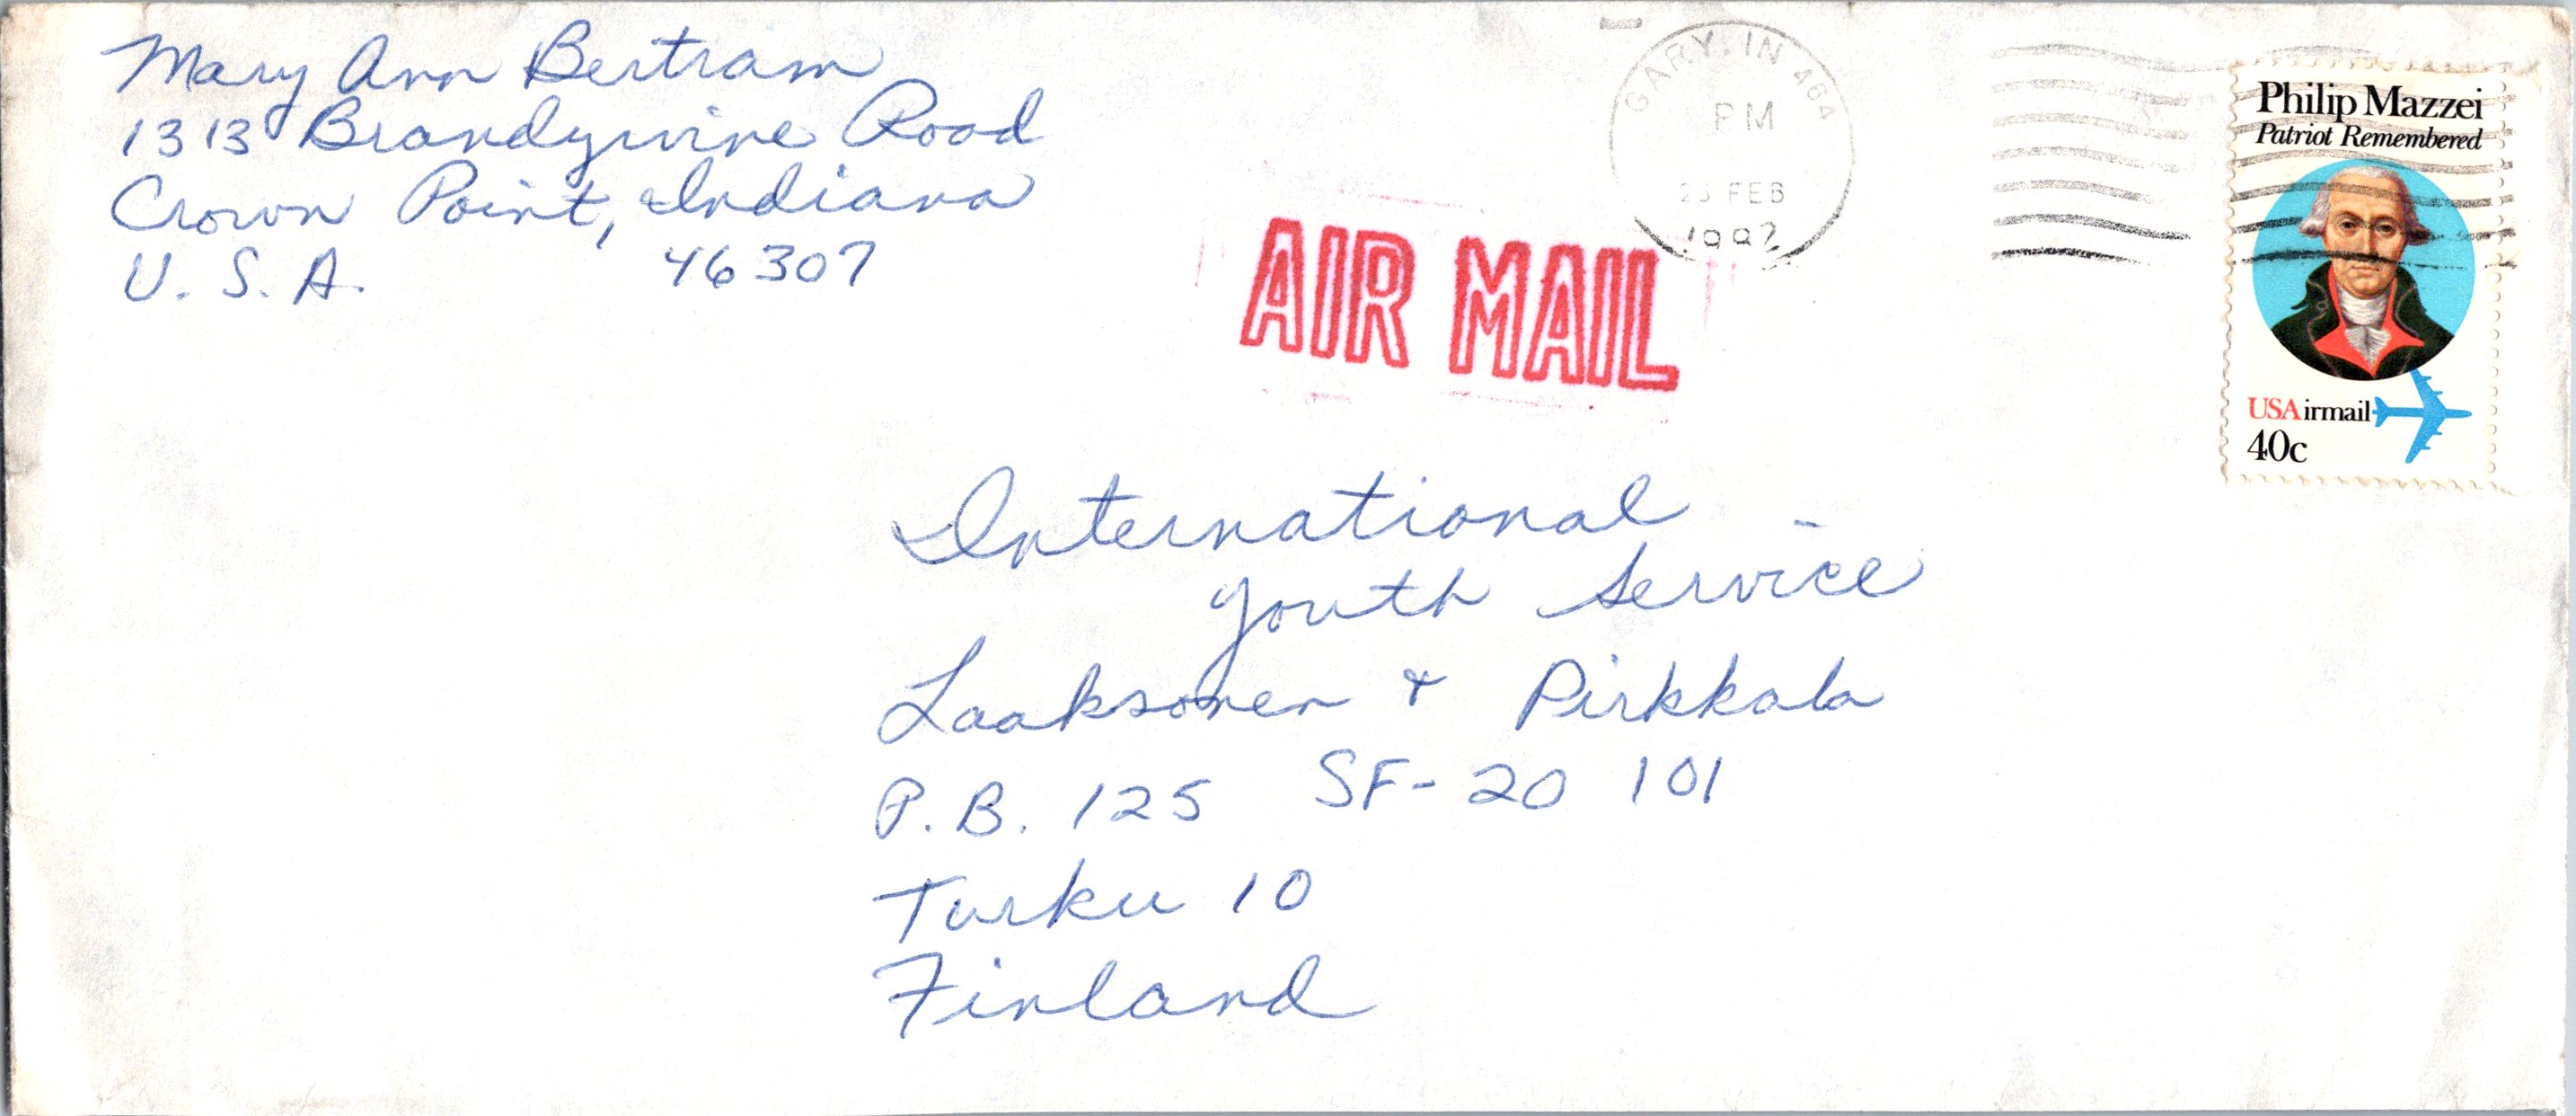 Mary Ann Bertram
1313 Brandywine Road
Crown Point, Indiana
U. S. A. 46307
GARY, IN 464
PM
FEB
AIR MAIL
Philip Mazzei
Patriot Remembered
USAirmail
40c
International
Youth Service
Laaksonen + Pirkkala
P.B. 125 SF-20 101
Turku 10
Finland